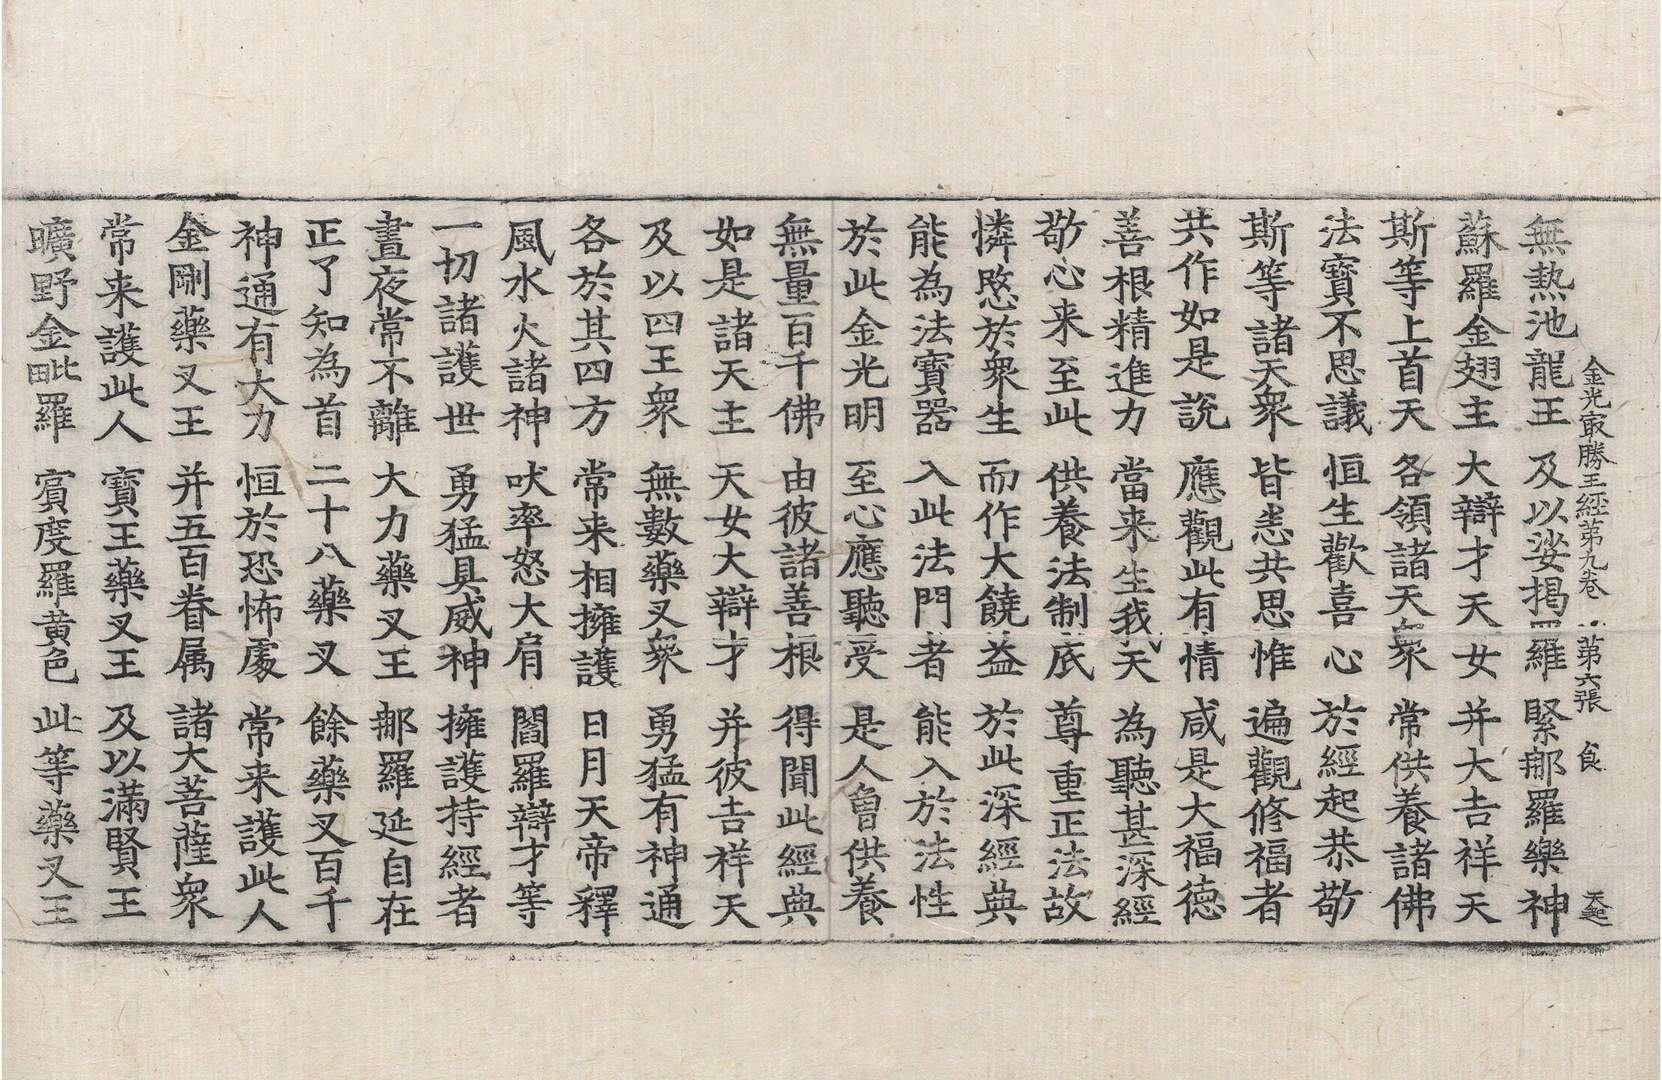 金光㝡勝王經第九卷 第六張 食 天起
無熱池龍王 及以娑揭羅 緊那羅樂神
蘇羅金翅主 大辯才天女 并大吉祥天
斯等上首天 各領諸天衆 常供養諸佛
法寶不思議 恒生歡喜心 於經起恭敬
斯等諸天衆 皆悉共思惟 遍觀修福者
共作如是說 應觀此有情 咸是大福德
善根精進力 當来生我天 為聽甚深經
敬心来至此 供養法制底 尊重正法故
憐愍於衆生 而作大饒益 於此深經典
能為法寶器 入此法門者 能入於法性
於此金光明 至心應聽受 是人曾供養
無量百千佛 由彼諸善根 得聞此經典
如是諸天主 天女大辯才 并彼吉祥天
及以四王衆 無數藥叉衆 勇猛有神通
各於其四方 常来相擁護 日月天帝釋
風水火諸神 吠率怒大肩 閻羅辯才等
一切諸護世 勇猛具威神 擁護持經者
晝夜常不離 大力藥叉王 那羅延自在
正了知為首 二十八藥叉 餘藥叉百千
神通有大力 恒於恐怖處 常来護此人
金剛藥叉王 并五百眷属 諸大菩薩衆
常来護此人 寶王藥叉王 及以滿賢王
曠野金毗羅 賔度羅黄色 此等藥叉王